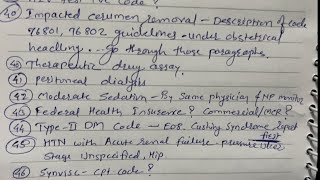 Code ?
40 Impacted cerumen removal - Description of code
76801, 76802 guidelines under obstetrical
heading... go through those paragraphs.
40 Therapeutic drug assay.
41 peritoneal dialysis
42 Moderate Sedation - By Same physician & NP
43 Federal Health Insurence ? Commercial/MCR ?
44 Type-II DM Code - E08. Cushing Syndrome report first
45 HTN with Acute renal failure - pressure ulcer
Stage Unspecified, Hip
46 Synvisc - CPT code ?